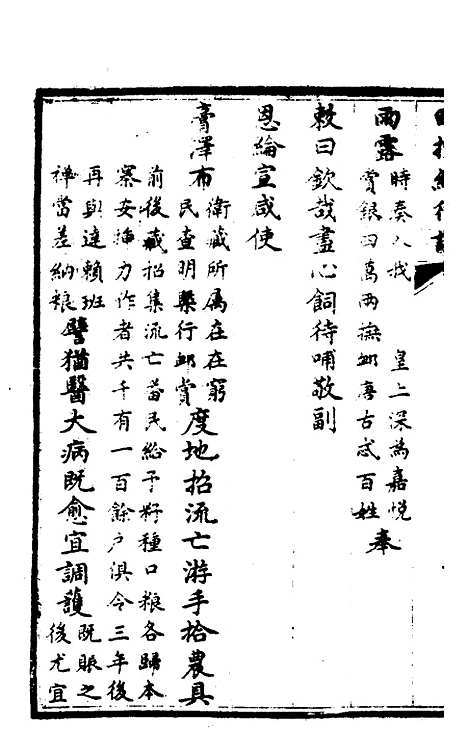 雨露時奏入我皇上深為嘉悅賞銀四萬兩撫卹唐古忒百姓奉
敕曰欽哉盡心飼待哺敬副
恩綸宣咸使
膏澤布衛藏所屬在在窮民查明槩行卹賞度地招流亡游手拾農具
前後藏招集流亡番民給予籽種口粮各歸本
寨安插力作者共千有一百餘户俱令三年後
再與達賴班禪當差納粮譬猶醫大病既愈宜調護既賑之後尤宜